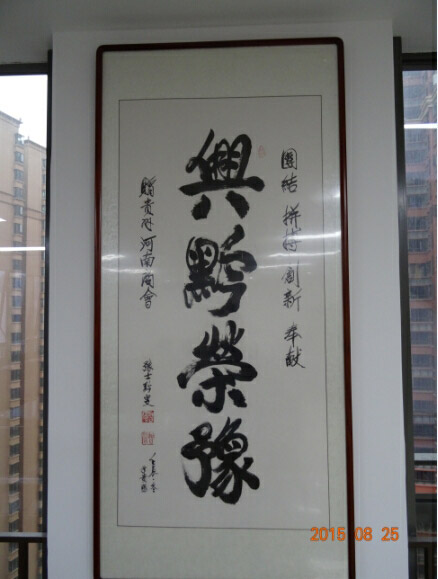 團結 拼搏 創新 奉獻
興黔榮豫
贈貴州河南商會
2015 08 25